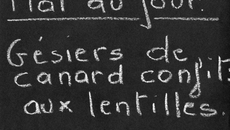 Plat du jour.
Gésiers de
canard confits
aux lentilles.